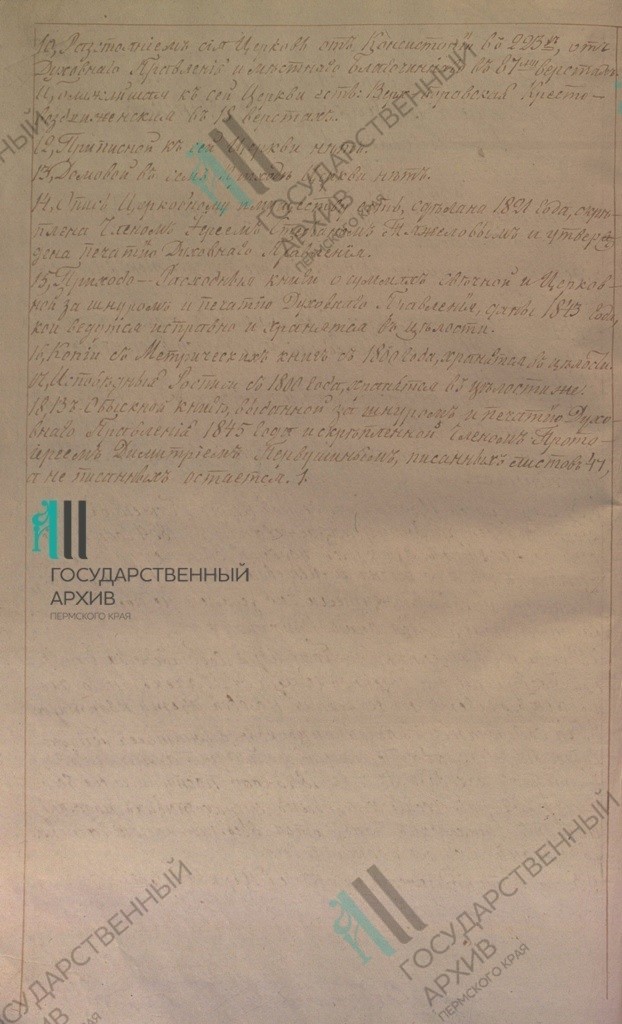 10, Разстояніемъ сія Церковь отъ Консисторіи въ 295ти, отъ
Духовнаго Правленія и мѣстнаго Благочиннаго въ 87ми верстахъ
къ сей Церкви есть: Кресто-
воздвиженская въ 18 верстахъ.
12, Приписной къ сей Церкви нѣтъ.
13, Домовой въ семъ Приходѣ Церкви нѣтъ.
14, Опись Церковному имуществу есть, сдѣлана 1821 года, скрѣ-
плена Членомъ Іереемъ и утверж-
дена печатію Духовнаго Правленія.
15, Приходо-Расходныя книги о суммахъ свѣчной и Церков-
ной за шнуромъ и печатію Духовнаго Правленія, даны 1843 года,
кои ведутся исправно и хранятся въ цѣлости.
16, Копіи съ Метрическихъ книгъ съ 1800 года, хранятся въ цѣлости.
17, Исповѣдныя Росписи съ 1800 года, хранятся въ цѣлости же.
18, Въ обыскной книгѣ, выданной за шнуромъ и печатію Духо-
внаго Правленія 1845 года и скрѣпленной Членомъ Прото-
іереемъ Димитріемъ писанныхъ листовъ 47,
а не писаныхъ остается 1.
ГОСУДАРСТВЕННЫЙ
АРХИВ
ПЕРМСКОГО КРАЯ
ГОСУДАРСТВЕННЫЙ
АРХИВ
ПЕРМСКОГО КРАЯ
ГОСУДАРСТВЕННЫЙ
АРХИВ
ГОСУДАРСТВЕННЫЙ
АРХИВ
ПЕРМСКОГО КРАЯ